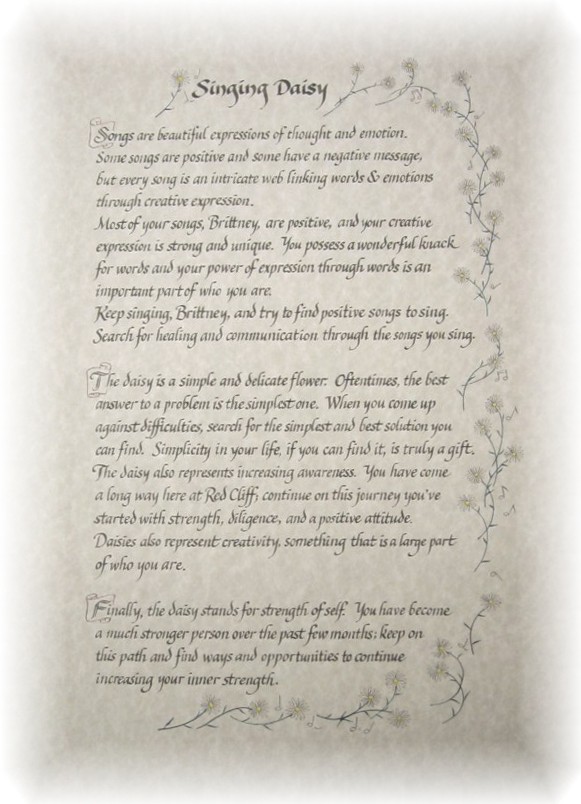 Singing Daisy
Songs are beautiful expressions of thought and emotion.
Some songs are positive and some have a negative message,
but every song is an intricate web linking words & emotions
through creative expression.
Most of your songs, Brittney, are positive, and your creative
expression is strong and unique. You possess a wonderful knack
for words and your power of expression through words is an
important part of who you are.
Keep singing, Brittney, and try to find positive songs to sing.
Search for healing and communication through the songs you sing.
The daisy is a simple and delicate flower. Oftentimes, the best
answer to a problem is the simplest one. When you come up
against difficulties, search for the simplest and best solution you
can find. Simplicity in your life, if you can find it, is truly a gift.
The daisy also represents increasing awareness. You have come
a long way here at Red Cliff; continue on this journey you've
started with strength, diligence, and a positive attitude.
Daisies also represent creativity, something that is a large part
of who you are.
Finally, the daisy stands for strength of self. You have become
a much stronger person over the past few months; keep on
this path and find ways and opportunities to continue
increasing your inner strength.